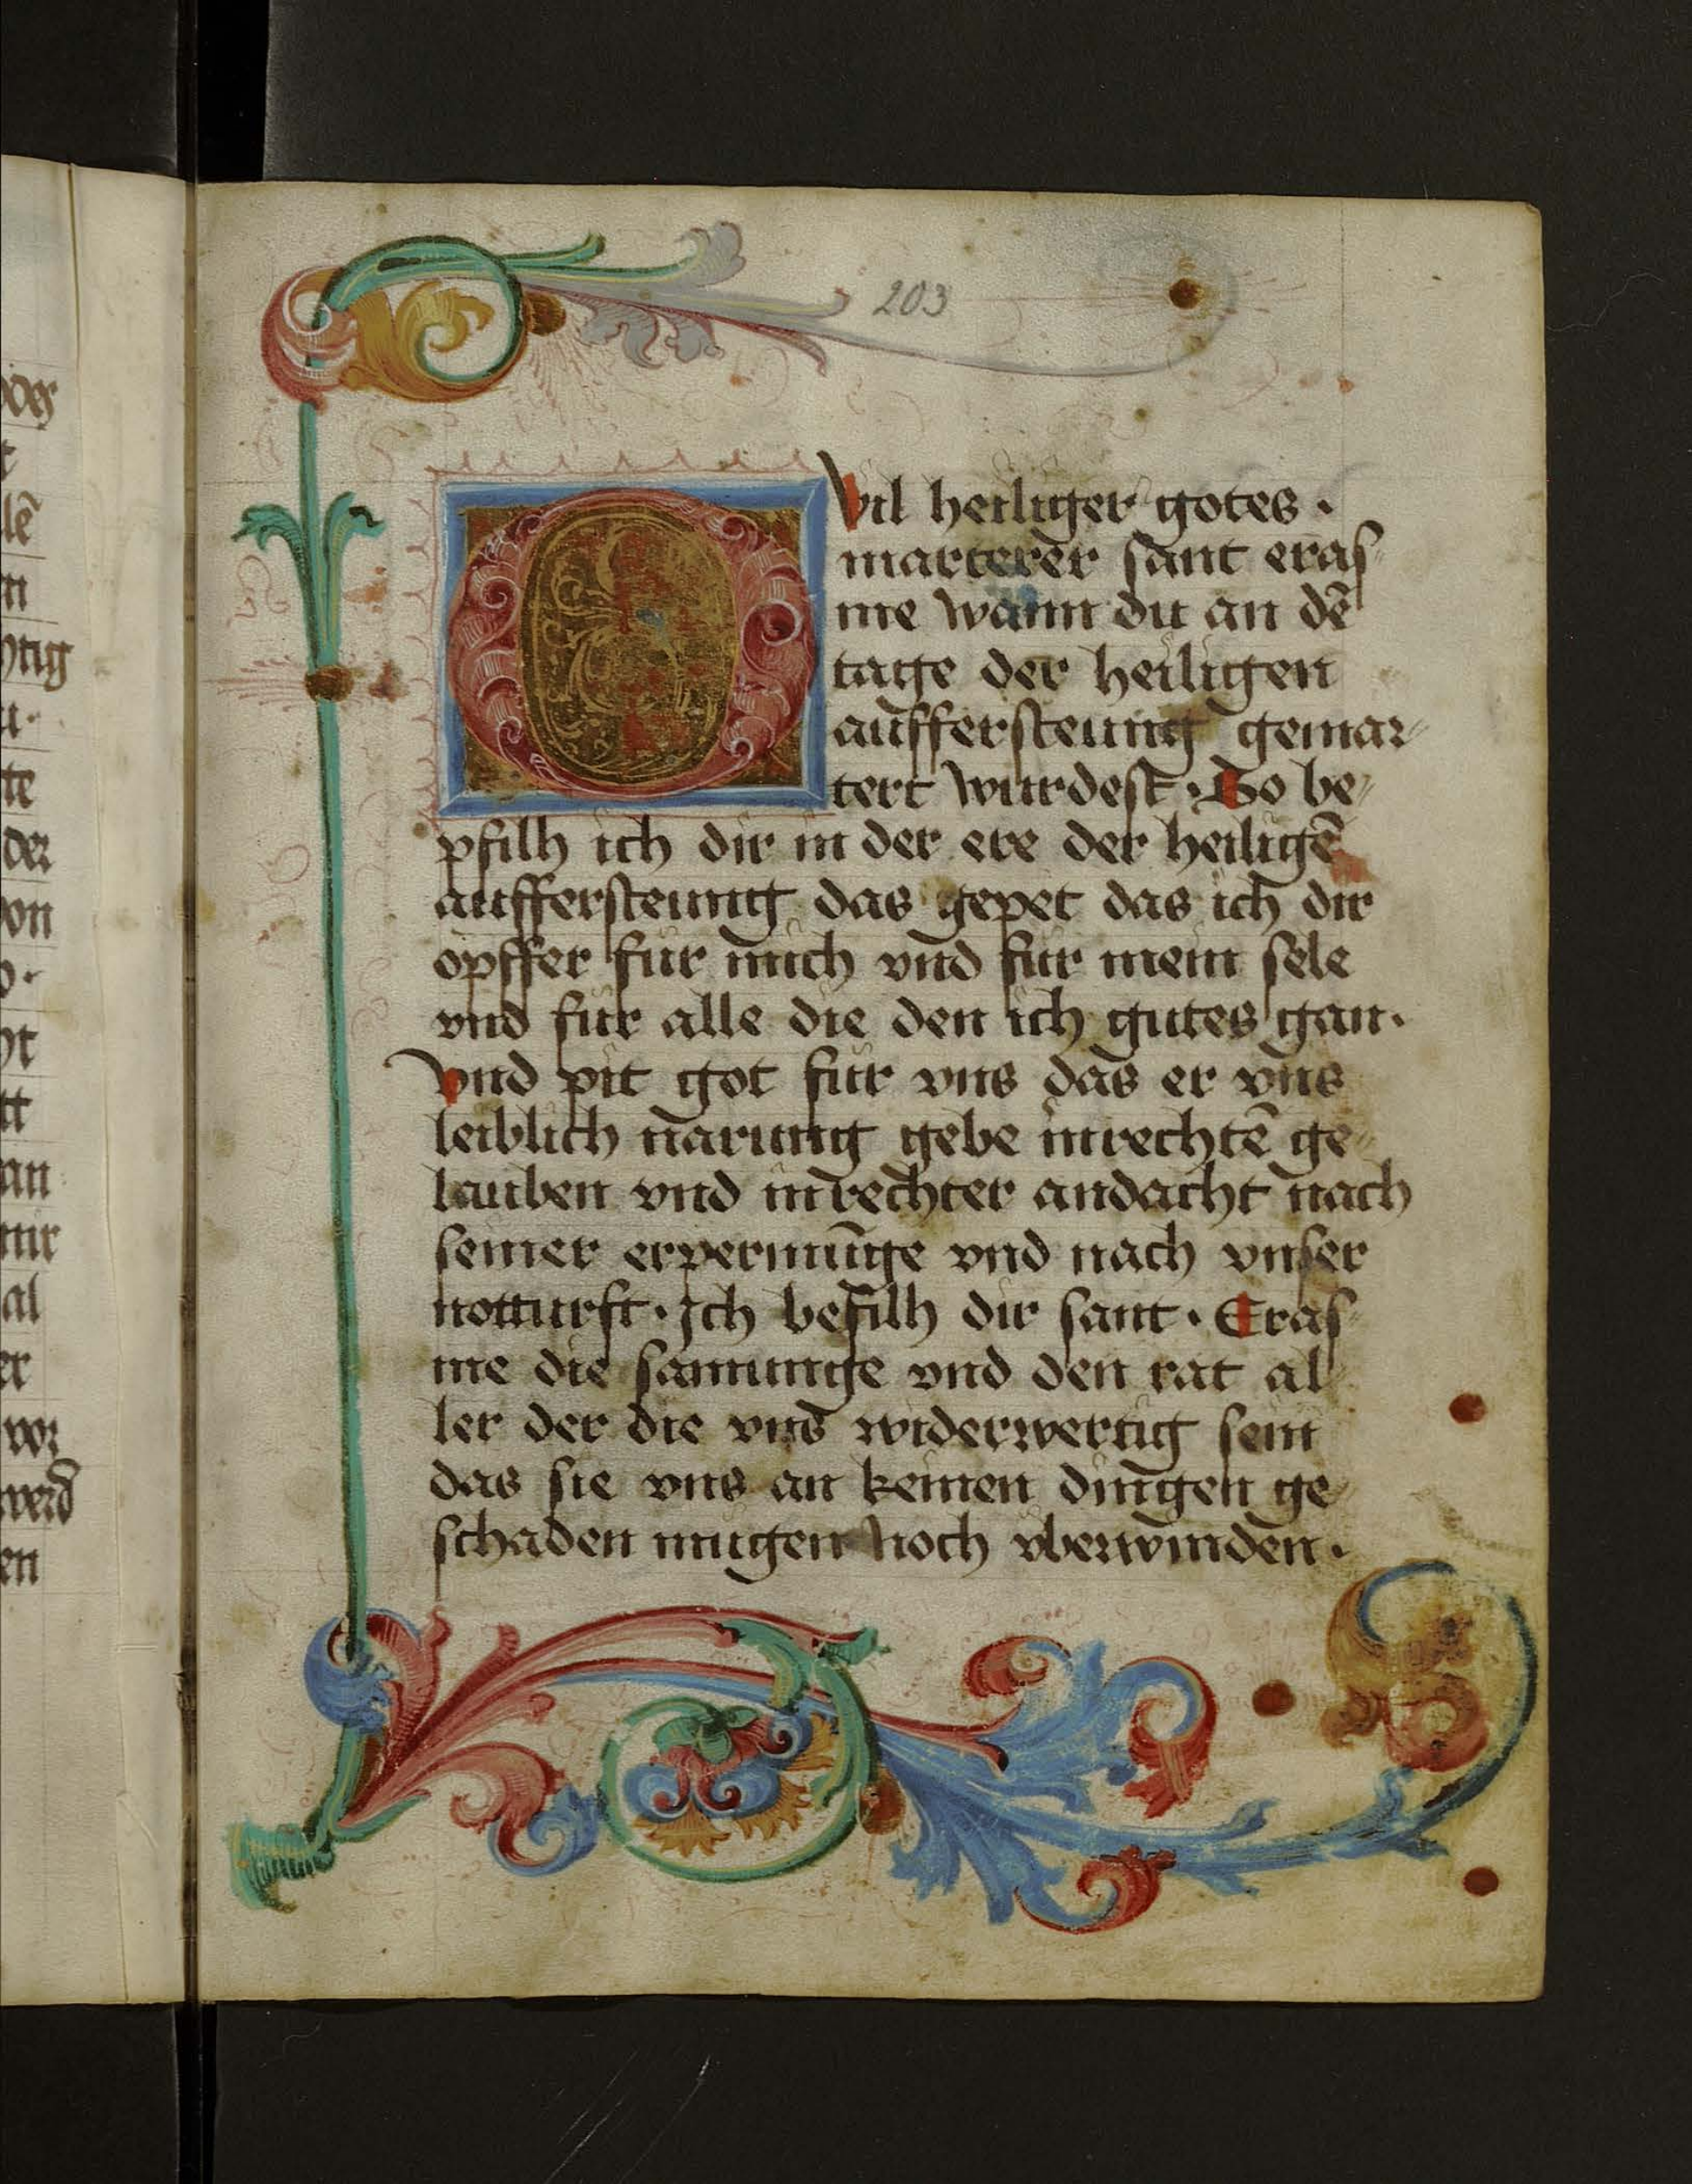 203
O Vil heiliger gotes ·
marterer sant eras⸗
me wann du an dē
tage der heiligen
auffersteung gemar⸗
tert wurdest · So be⸗
pfilh ich dir in der ere der heiligē
auffersteung das gepet das ich dir
opffer für mich vnd für mein sele
vnd für alle die den ich gutes gan ·
Vnd pit got für vns das er vns
leiblich narung gebe inrechtē ge⸗
lauben vnd inrechter andacht nach
seiner erpermūge vnd nach vnser
notturft · Ich befilh dir sant · Eras⸗
me die samunge vnd den rat al⸗
ler der die vns widerwertig sein
das sie vns an keinen dingen ge⸗
schaden mugen noch vberwinden ·